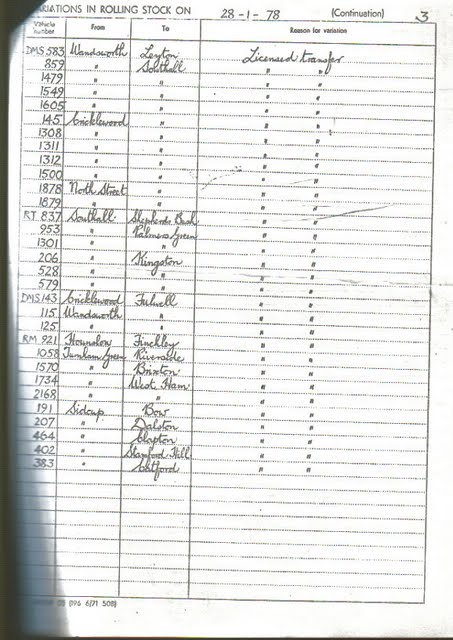 VARIATIONS IN ROLLING STOCK ON 28-1-78 (Continuation) 3
Vehicle number From To Reason for variation
DMS 583 Wandsworth Leyton Licensed transfer
859 " Southall " "
1479 " " " "
1549 " " " "
1605 " " " "
145 Cricklewood " " "
1308 " " " "
1311 " " " "
1312 " " " "
1500 " " " "
1878 North Street " " "
1879 " " " "
RT 837 Southall Shepherds Bush " "
953 " Palmers Green " "
1301 " " " "
206 " Kingston " "
528 " " " "
579 " " " "
DMS 143 Cricklewood Fulwell " "
115 Wandsworth " " "
125 " " " "
RM 921 Hounslow Finchley " "
1058 Turnham Green Riverside " "
1570 " Brixton " "
1734 " West Ham " "
2168 " " " "
191 Sidcup Bow " "
207 " Dalston " "
464 " Clapton " "
402 " Stamford Hill " "
383 " Catford " "
(196 6/71 50B)